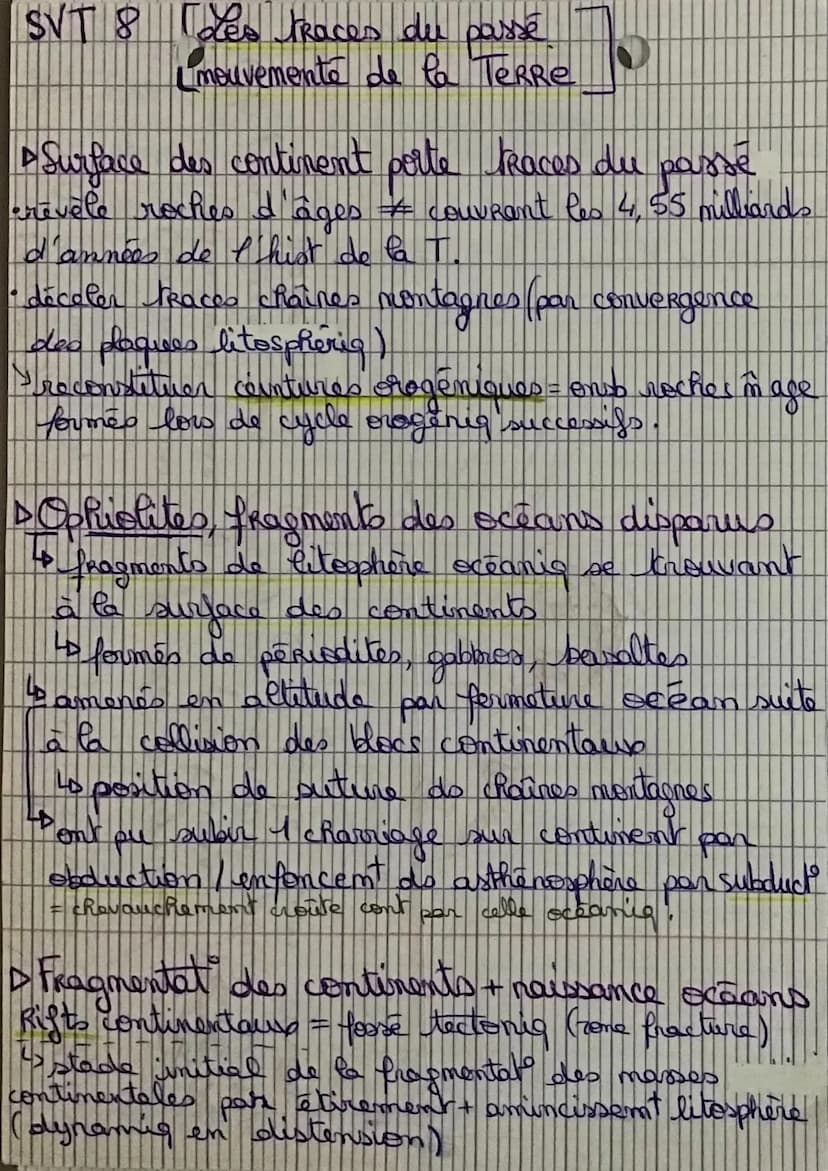 SVT 8 [Les traces du passé
mouvementé de la TERRE]
▷ Surface des continent porte traces du passé
• révèle roches d'âges ≠ couvrant les 4,55 milliards
d'années de l'hist de la T.
• déceler traces chaînes montagnes (par convergence
des plaques litosphériq)
↘ reconstituer ceintures orogéniques = ensb roches m̂ age
formés lors de cycle orogéniq successifs.
▷ Ophiolites, fragments des océans disparus
↳ fragments de litosphère océaniq se trouvant
à la surface des continents
↳ formés de périodites, gabbros, basaltes
↳ amenés en altitude par fermeture océan suite
à la collision des blocs continentaux
↳ position de suture de chaînes montagnes
↳ ont pu subir 1 charriage sur continent par
obduction / enfoncemt ds asthénosphère par subduct°
= chevauchement croûte cont par celle océaniq.
▷ Fragmentat° des continents + naissance océans
Rifts continentaux = fossé tectoniq (zone fracture)
↳ stade initial de la fragmentat° des masses
continentales par étirement + amincissemt litosphère
(dynamiq en distension)